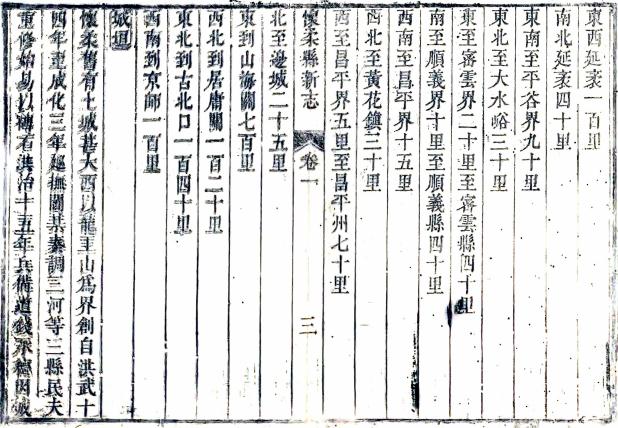 東西延袤一百里
南北延袤四十里
東南至平谷界九十里
東北至大水峪三十里
東至密雲界二十里至密雲縣四十里
南至順義界十里至順義縣四十里
西南至昌平界十五里
西北至黃花鎮三十里
西至昌平界五里至昌平州七十里
懷柔縣新志 卷一 三
北至邊城二十五里
東到山海關七百里
西北到居庸關一百二十里
東北到古北口一百四十里
西南到京師一百里
城垣
懷柔舊有土城甚大西以龍王山為界創自洪武十
四年重成化三年廵撫閻某奏調三河等三縣民夫
重修始易以磚石洪治十五年兵備道錢承德因城